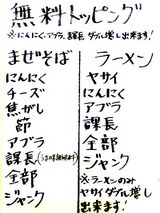 無料トッピング
※にんにく、アブラ、課長、ダブル増し出来ます!
まぜそば
にんにく
チーズ
焦がし
節
アブラ
課長
全部
ジャンク
ラーメン
ヤサイ
にんにく
アブラ
課長
全部
ジャンク
※ラーメンのみ
ヤサイダブル増し
出来ます!